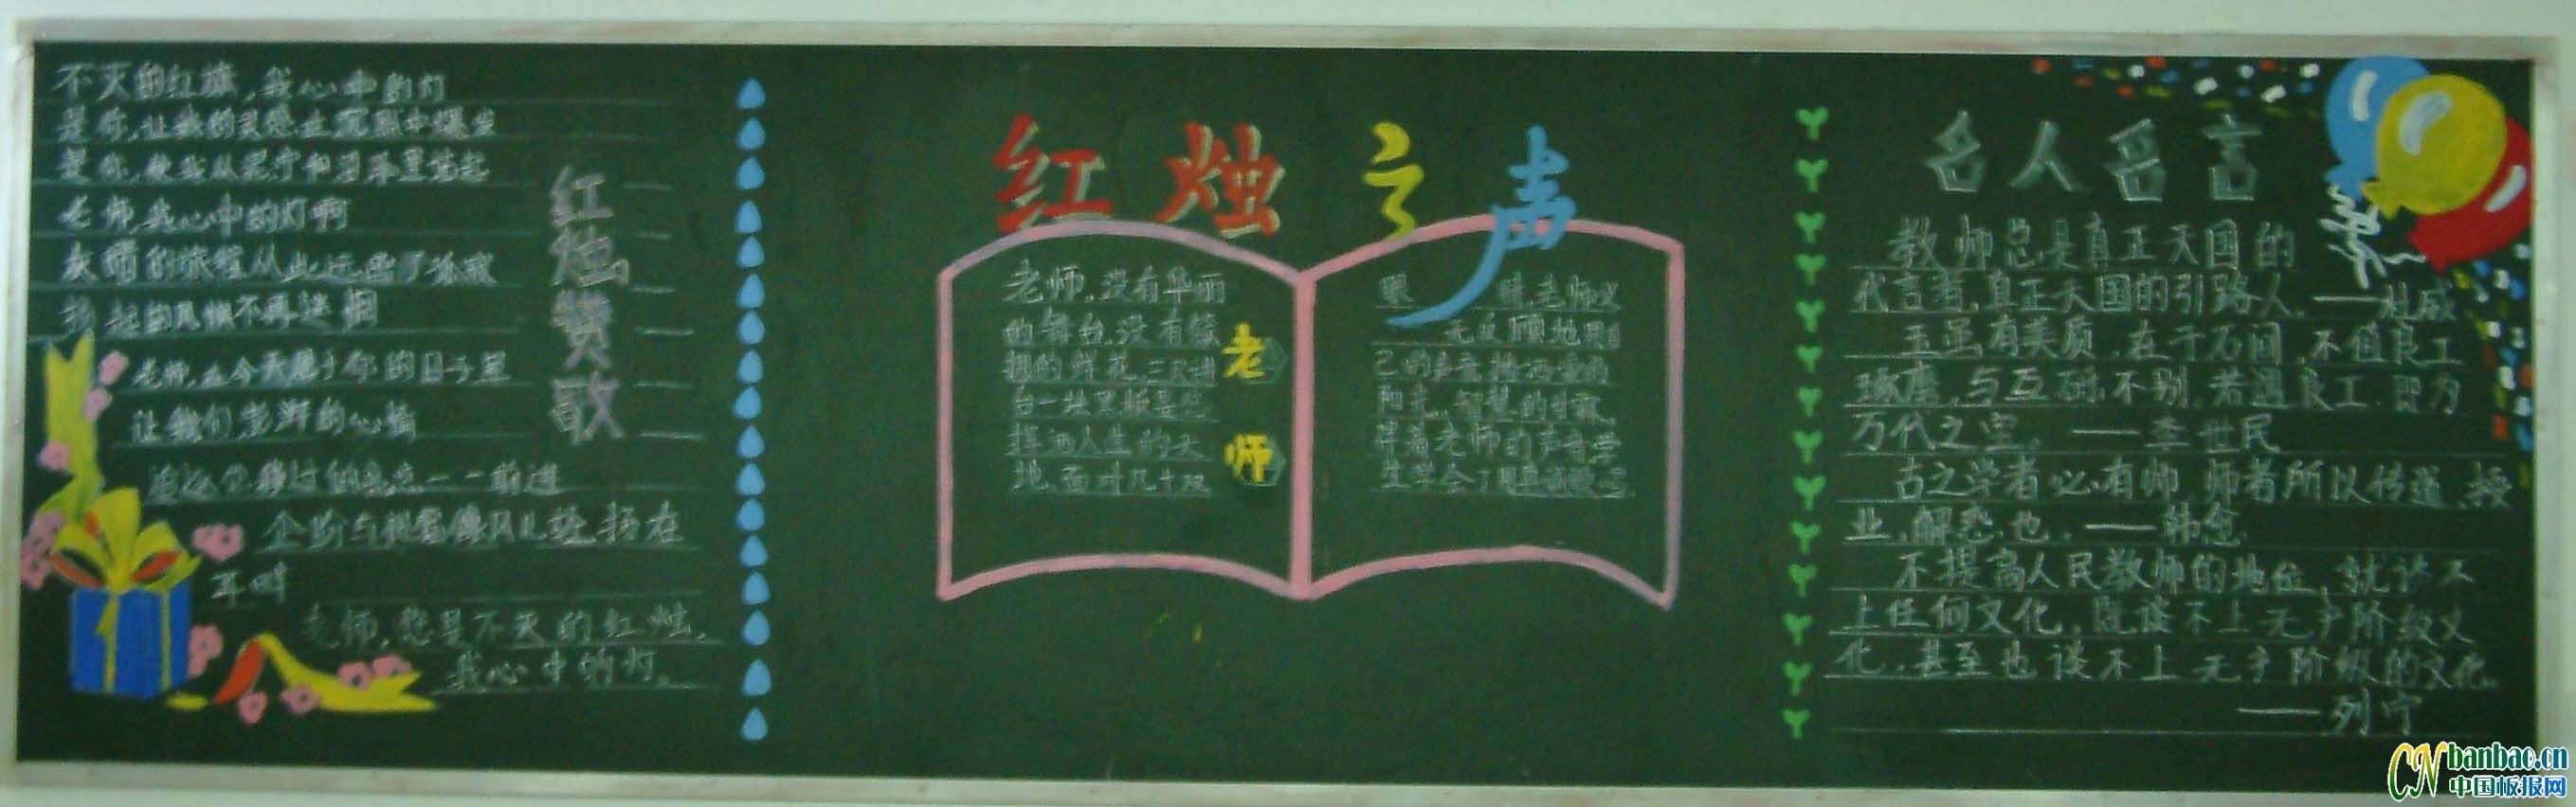 不灭的红旗,我心中的灯
是你,让我的灵感在沉默中爆发
是你,使我从泥泞和沼泽里站起
老师,我心中的灯啊
灰暗的旅程从此远离了
扬起的风帆不再迷惘
老师,在今天属于你的日子里
让我们澎湃的心情
耳畔
老师,您是不灭的红烛,
我心中的灯。
红烛赞歌
红烛之声
老师,没有华丽
的舞台,没有簇
拥的鲜花,三尺讲
台一块黑板是您
挥洒人生的天
地,面对几十双
老师
眼睛老师义
无反顾地用自
己的
阳光,智慧的甘霖,
伴着老师的声音学
生学会了
名人名言
教师总是真正天国的
代言者,真正天国的引路人。——杜威
玉虽有美质,在于石间,不值良工
琢磨,与瓦砾不别,若遇良工,即为
万代之宝。——李世民
古之学者必有师,师者所以传道、授
业、解惑也。——韩愈
不提高人民教师的地位,就谈不
上任何文化,既谈不上无产阶级文
化,甚至也谈不上无产阶级的文化。
——列宁
CN banbao.cn
中国板报网